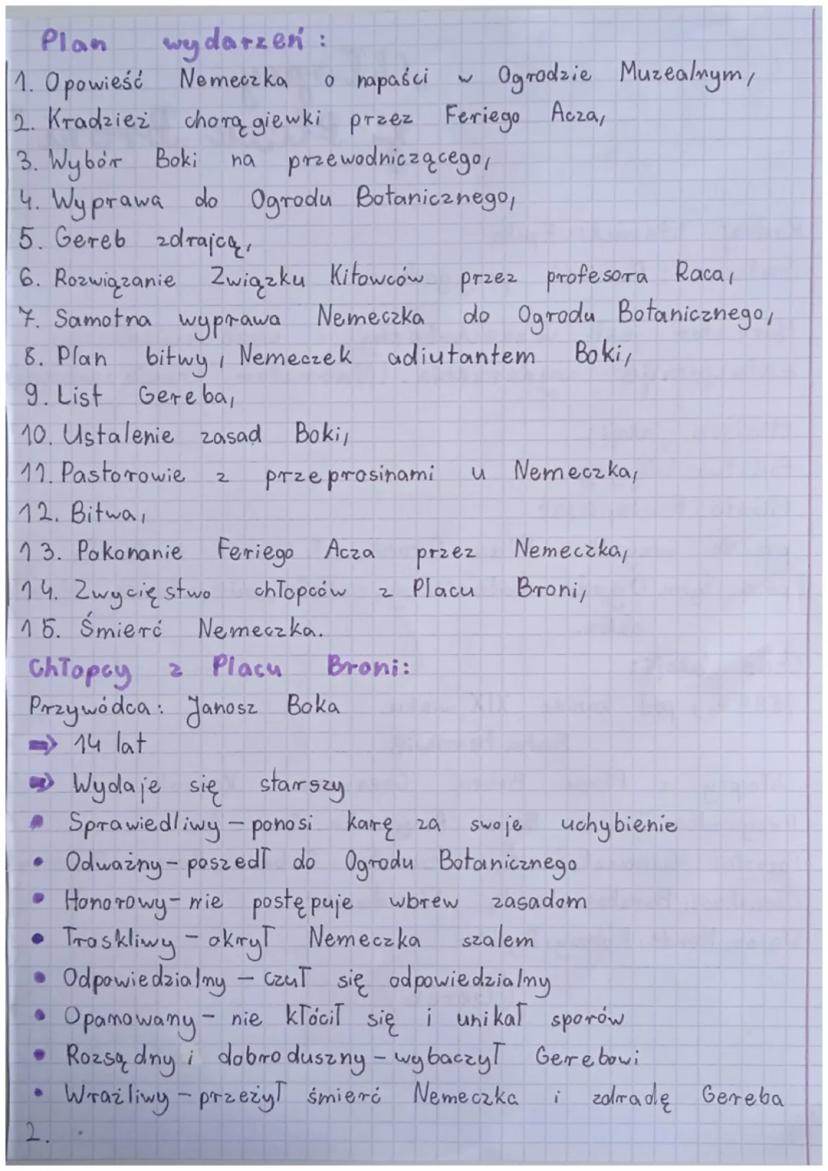 Plan wydarzeń:
1. Opowieść Nemeczka o napaści w Ogrodzie Muzealnym,
2. Kradzież chorągiewki przez Feriego Acza,
3. Wybór Boki na przewodniczącego,
4. Wyprawa do Ogrodu Botanicznego,
5. Gereb zdrajcą,
6. Rozwiązanie Związku Kitowców przez profesora Raca,
7. Samotna wyprawa Nemeczka do Ogrodu Botanicznego,
8. Plan bitwy, Nemeczek adiutantem Boki,
9. List Gereba,
10. Ustalenie zasad Boki,
11. Pastorowie z przeprosinami u Nemeczka,
12. Bitwa,
13. Pokonanie Feriego Acza przez Nemeczka,
14. Zwycięstwo chłopców z Placu Broni,
15. Śmierć Nemeczka.
Chłopcy z Placu Broni:
Przywódca: Janosz Boka
⇒ 14 lat
⇒ Wydaje się starszy
• Sprawiedliwy – ponosi karę za swoje uchybienie
• Odważny – poszedł do Ogrodu Botanicznego
• Honorowy – nie postępuje wbrew zasadom
• Troskliwy – okrył Nemeczka szalem
• Odpowiedzialny – czuł się odpowiedzialny
• Opanowany – nie kłócił się i unikał sporów
• Rozsądny i dobroduszny – wybaczył Gerebowi
• Wrażliwy – przeżył śmierć Nemeczka i zdradę Gereba
2.